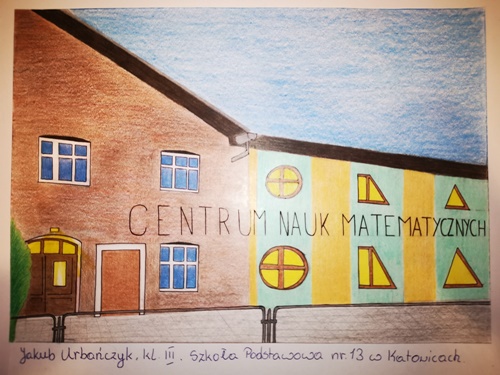 CENTRUM NAUK MATEMATYCZNYCH
Jakub Urbańczyk, kl III. Szkoła Podstawowa nr 13 w Katowicach